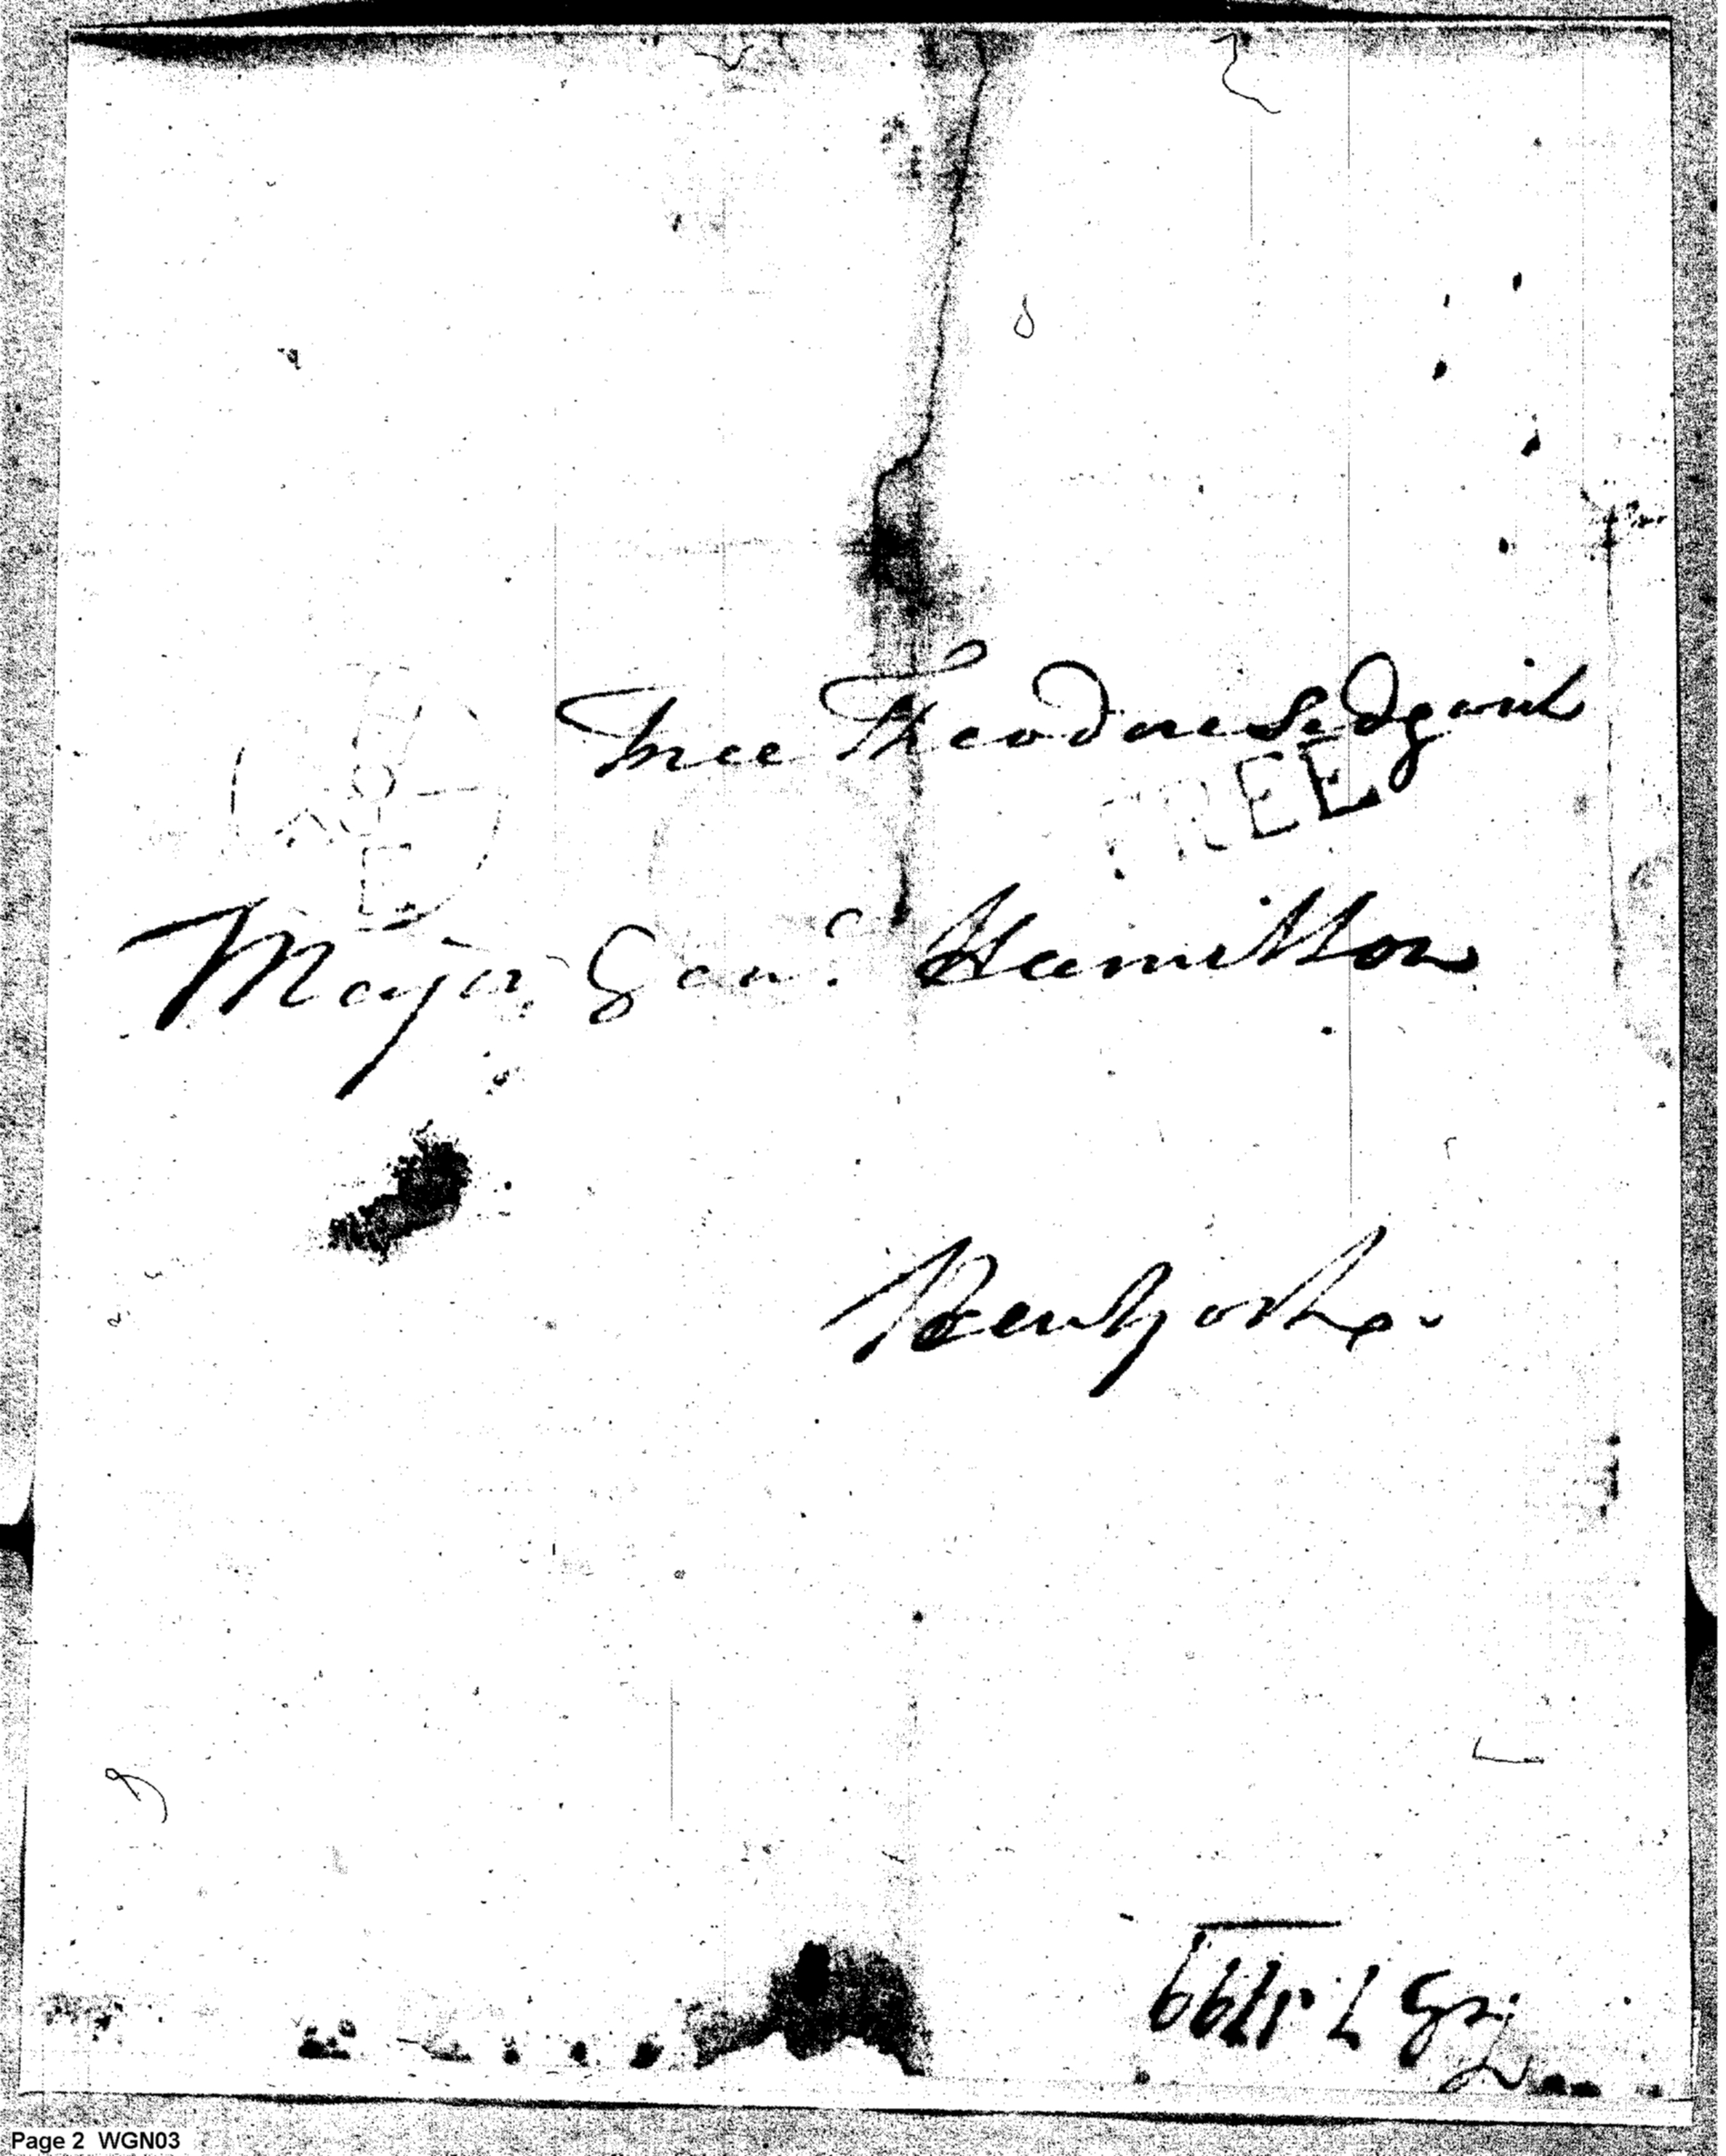 Free Theodore Sedgwick
FREE
Major Genl. Hamilton
New York.
Feb 7. 1799
Page 2 WGN03